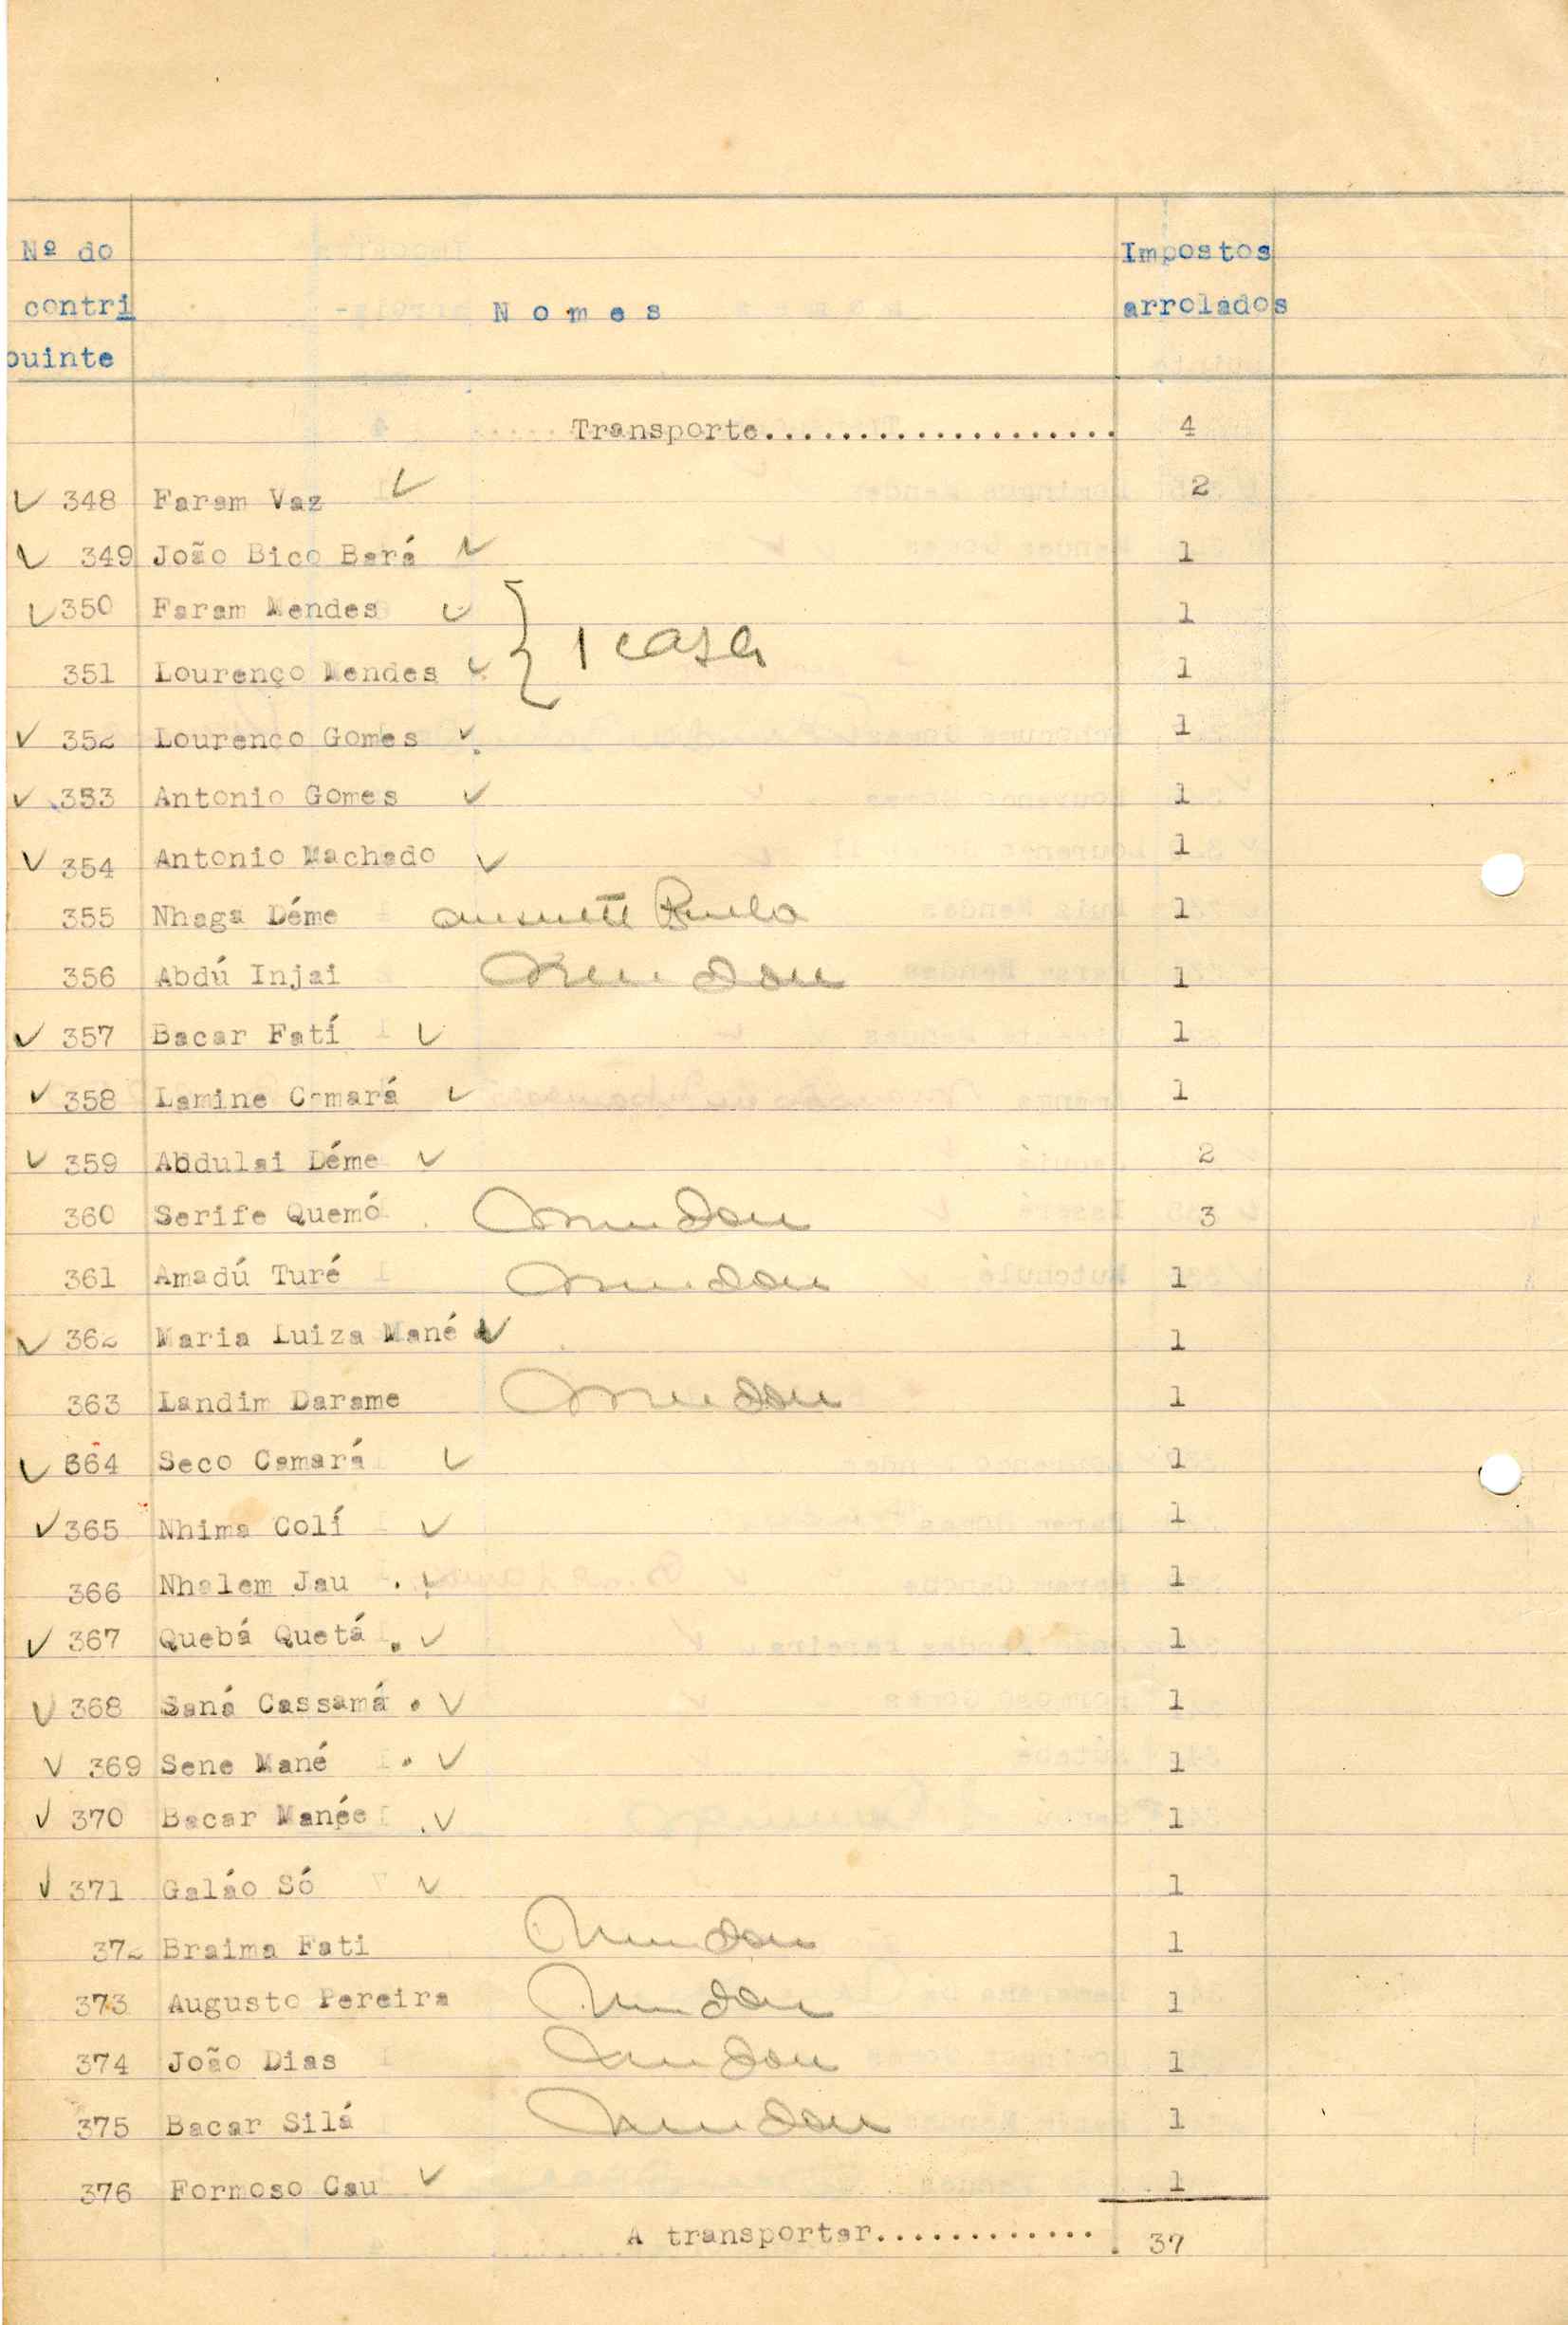 Nº do
contri
buinte
N o m e s
Impostos
arrolados
Transporte................... 4
✓ 348 Faram Vaz ✓ 2
✓ 349 João Bico Bará ✓ 1
✓ 350 Faram Mendes ✓ 1
1 casa
351 Lourenço Mendes ✓ 1
✓ 352 Lourenço Gomes ✓ 1
✓ 353 Antonio Gomes ✓ 1
✓ 354 Antonio Machado ✓ 1
355 Nhaga Déme 1
356 Abdú Injai 1
✓ 357 Bacar Fatí ✓ 1
✓ 358 Lamine Camará ✓ 1
✓ 359 Abdulai Déme ✓ 2
360 Serife Quemó 3
361 Amadú Turé 1
✓ 362 Maria Luiza Mané ✓ 1
363 Landim Darame 1
✓ 364 Seco Camará ✓ 1
✓ 365 Nhima Colí ✓ 1
366 Nhalem Jau . ✓ 1
✓ 367 Quebá Quetá . ✓ 1
✓ 368 Saná Cassamá . ✓ 1
✓ 369 Sene Mané . ✓ 1
✓ 370 Bacar Manée . ✓ 1
✓ 371 Galáo Só ✓ 1
372 Braima Fati 1
373 Augusto Pereira 1
374 João Dias 1
375 Bacar Silá 1
376 Formoso Cau ✓ 1
A transportar............. 37